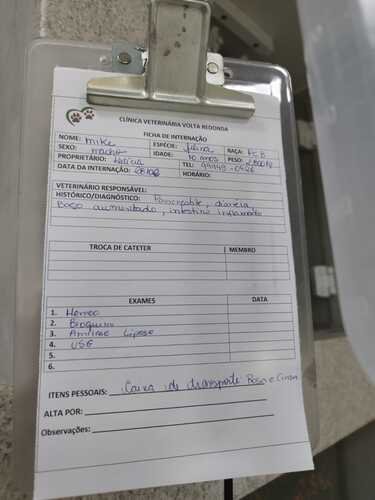 CLÍNICA VETERINÁRIA VOLTA REDONDA
FICHA DE INTERNAÇÃO
NOME: Mike ESPÉCIE: felina RAÇA: PCB
SEXO: macho IDADE: 10 anos PESO:
PROPRIETÁRIO: TEL:
DATA DA INTERNAÇÃO: HORÁRIO:
VETERINÁRIO RESPONSÁVEL:
HISTÓRICO/DIAGNÓSTICO: Pancreatite, diarreia,
Baço aumentado, intestino inflamado
TROCA DE CATETER MEMBRO
EXAMES DATA
1. Hemo
2. Bioquim
3. Amilase Lipase
4. USG
5.
6.
ITENS PESSOAIS: Caixa de transporte Rosa e Cinza
ALTA POR:
Observações: